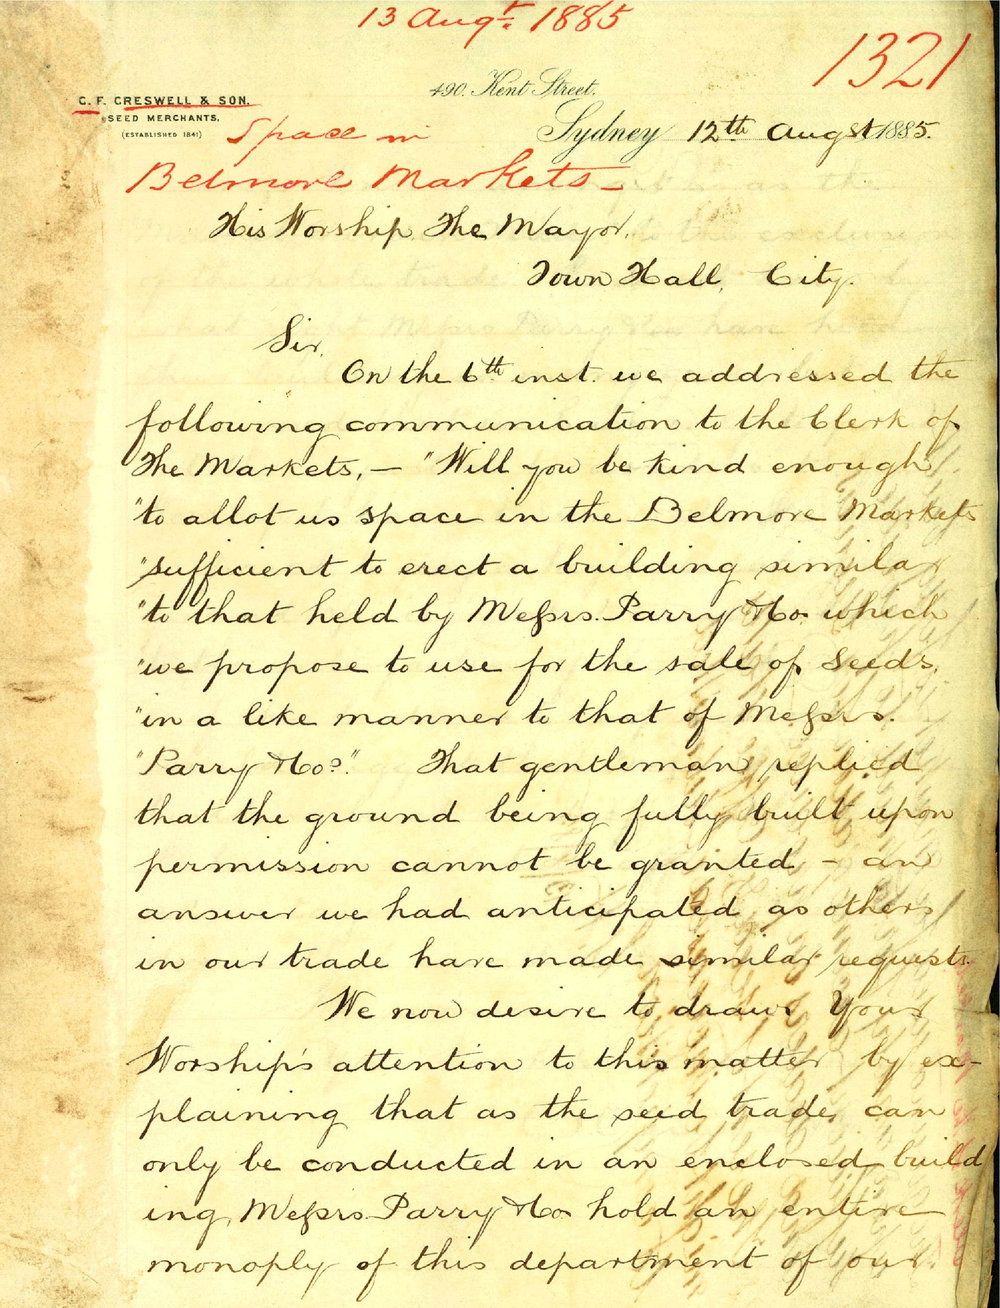 13 Augt. 1885
1321
490. Kent Street.
C. F. CRESWELL & SON.
SEED MERCHANTS.
(ESTABLISHED 1841)
Sydney 12th Augst 1885.
Space in
Belmore Markets
His Worship The Mayor.
Town Hall, City.
Sir,
On the 6th inst. we addressed the
following communication to the Clerk of
the Markets, — "Will you be kind enough
"to allot us space in the Belmore Markets
"sufficient to erect a building similar
"to that held by Messrs. Parry & Co. which
"we propose to use for the sale of Seeds,
"in a like manner to that of Messrs.
"Parry & Co." That gentleman replied
that the ground being fully built upon
permission cannot be granted - an
answer we had anticipated as others
in our trade have made similar requests.
We now desire to draw Your
Worship's attention to this matter by ex-
plaining that as the seed trade can
only be conducted in an enclosed build
ing, Messrs. Parry & Co hold an entire
monoply of this department of our